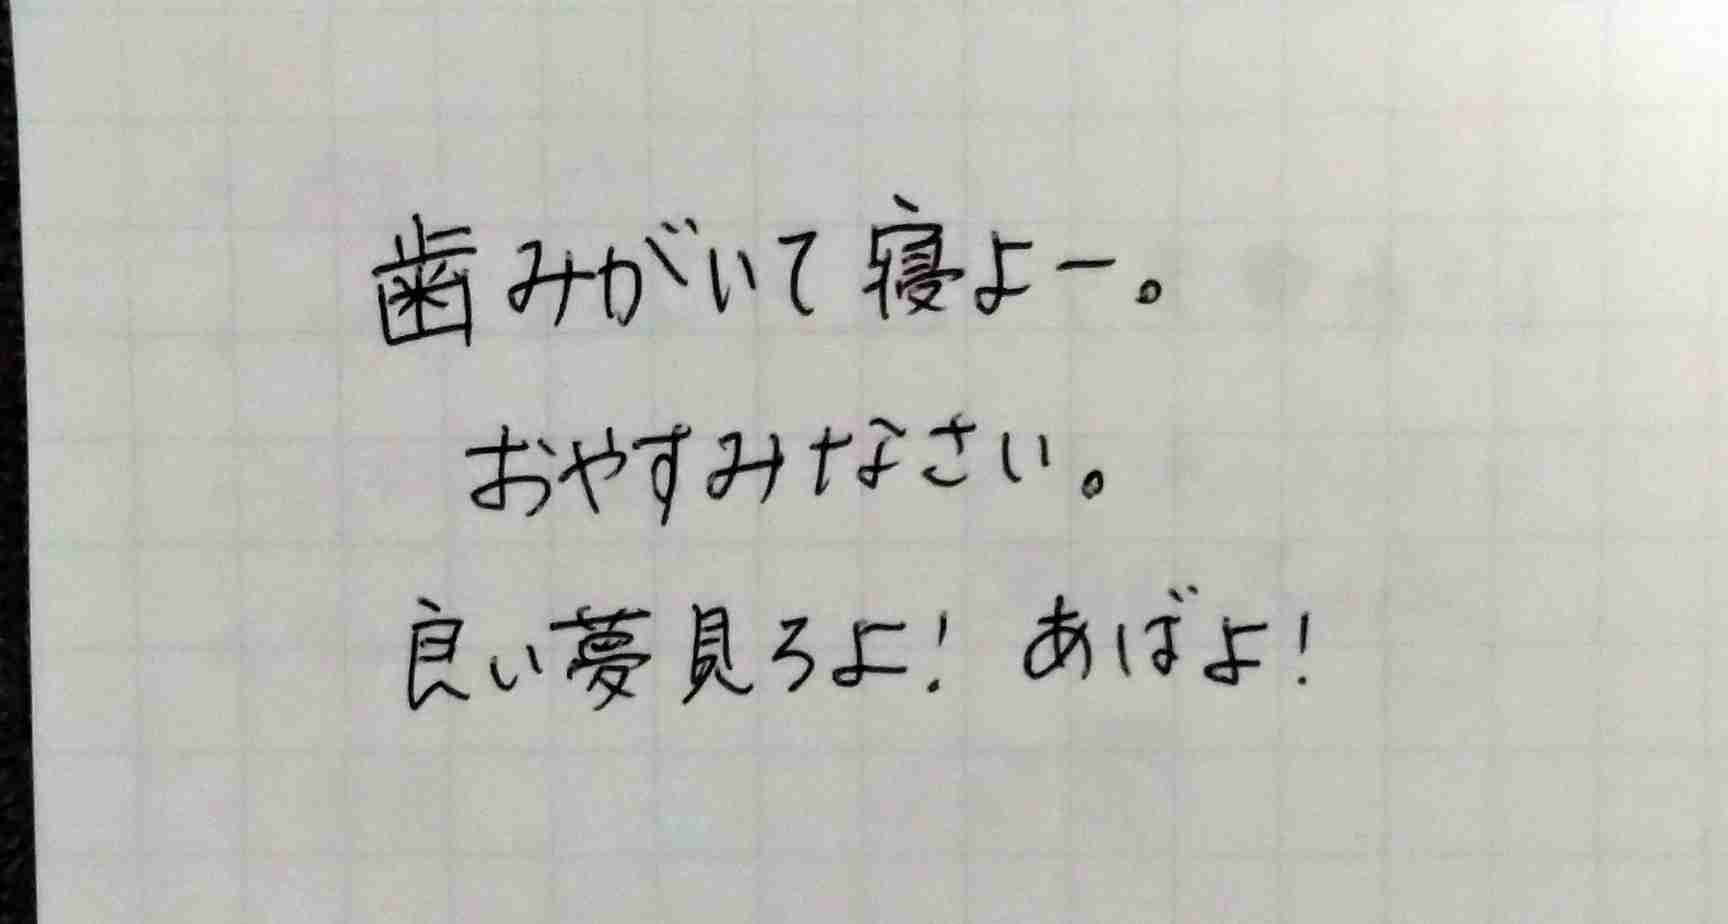 歯みがいて寝よー。
おやすみなさい。
良い夢見ろよ！あばよ！